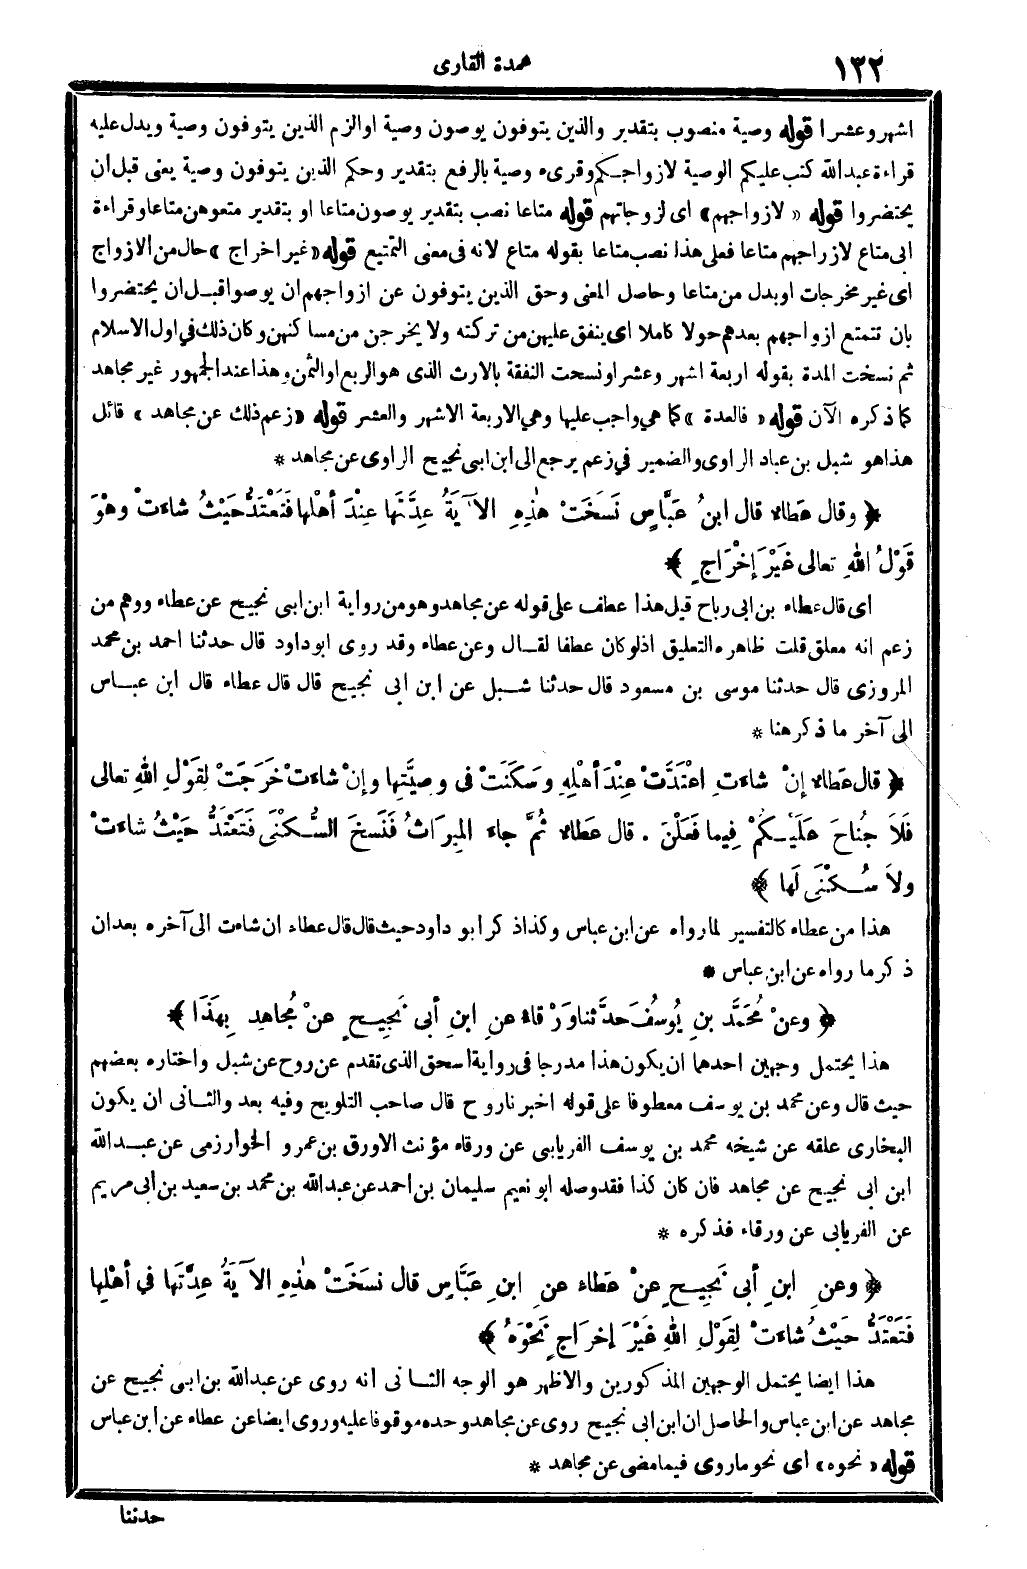 ١٣٢
عمدة القارى
اشهر وعشرا قوله وصية منصوب بتقدير والذين يتوفون يوصون وصية او الزم الذين يتوفون وصية ويدل عليه
قراءة عبدالله كتب عليكم الوصية لازواجكم وقرىء وصية بالرفع بتقدير وحكم الذين يتوفون وصية يعنى قبل أن
يحتضروا قوله « لازواجهم» اى لزوجاتهم قوله متاعا نصب بتقدير يوصون متاعا او بتقدير متعوهن متاعا وقراءة
ابى متاع لازراجهم متاعا فعلى هذا نصب متاعا بقوله متاع لانه فى معنى التمتيع قوله «غير اخراج » حال من الازواج
اى غير مخرجات او بدل من متاعا وحاصل المعنى وحق الذين يتوفون عن ازواجهم ان يوصوا قبل ان يحتضروا
بان تتمتع ازواجهم بعدهم حولا كاملا اى ينفق عليهن من تركته ولا يخرجن من مساكنهن وكان ذلك فى اول الاسلام
ثم نسخت المدة بقوله اربعة اشهر وعشرا ونسحت النفقة بالارث الذى هو الربع او الثمن وهذا عند الجمهور غير مجاهد
كما ذكره الآن قوله « فالعدة » كما هي واجب عليها وهي الاربعة الاشهر والعشر قوله «زعم ذلك عن مجاهد » قائل
هذا هو شبل بن عباد الراوى والضمير في زعم يرجع الى ابن ابى نجيح الراوى عن مجاهد *
﴿ وقال عَطاء قال ابنُ عَبَّاسٍ نَسَخَتْ هٰذِهِ الآيَةُ عِدَّتَها عِنْدَ أهْلِها فَتَعْتَدُّ حَيْثُ شاءَتْ وهْوَ
قَوْلُ اللهِ تعالى غَيْرَ إخْرَاجٍ ﴾
اى قال عطاء بن ابى رباح قيل هذا عطف على قوله عن مجاهد وهو من رواية ابن ابى نجيح عن عطاء ووهم من
زعم انه معلق قلت ظاهره التعليق اذ لو كان عطفا لقال وعن عطاء وقد روى ابو داود قال حدثنا احمد بن محمد
المروزى قال حدثنا موسى بن مسعود قال حدثنا شبل عن ابن ابى نجيح قال قال عطاء قال ابن عباس
الى آخر ما ذكر هنا *
﴿ قال عَطاء إنْ شاءَتِ اعْتَدَّتْ عِنْدَ أهْلِهِ وسَكَنَتْ فى وصِيَّتِها وإنْ شاءَتْ خَرَجَتْ لِقَوْلِ اللهِ تعالى
فَلاَ جُناحَ عَلَيْكُمْ فِيما فَعَلْنَ . قال عَطاء ثُمَّ جاء المِيرَاثُ فَنَسخَ السُّكْنَى فَتَعْتَدُّ حَيْثُ شاءَتْ
ولاَ سُكْنَى لَها ﴾
هذا من عطاء كالتفسير لما رواه عن ابن عباس وكذا ذكر ابو داود حيث قال قال عطاء ان شاءت الى آخره بعد ان
ذكر ما رواه عن ابن عباس *
﴿ وعنْ مُحَمَّد بنِ يُوسُفَ حدَّثنا ورْقاءُ عنِ ابنِ أبى نَجِيحٍ عنْ مُجاهِدٍ بِهَذَا ﴾
هذا يحتمل وجهين احدهما ان يكون هذا مدرجا فى رواية اسحق الذى تقدم عن روح عن شبل واختاره بعضهم
حيث قال وعن محمد بن يوسف معطوفا على قوله اخبرنا روح قال صاحب التلويح وفيه بعد والثانى ان يكون
البخارى علقه عن شيخه محمد بن يوسف الفريابى عن ورقاء مؤنث الاورق بن عمرو الخوارزمى عن عبدالله
ابن ابى نجيح عن مجاهد فان كان كذا فقد وصله ابو نعيم سليمان بن احمد عن عبدالله بن محمد بن سعيد بن أبى مريم
عن الفريابى عن ورقاء فذكره *
﴿ وعنِ ابنِ أبى نَجِيحٍ عنْ عَطاء عنِ ابنِ عَبَّاسٍ قال نسَخَتْ هٰذِهِ الآيَةُ عِدَّتَها فى أهْلِها
فَتَعْتَدُّ حَيْثُ شاءَتْ لِقَوْلِ اللهِ غَيْرَ إخرَاجٍ نَحْوَهُ ﴾
هذا ايضا يحتمل الوجهين المذكورين والاظهر هو الوجه الثانى أنه روى عن عبدالله بن ابى نجيح عن
مجاهد عن ابن عباس والحاصل ان ابن ابى نجيح روى عن مجاهد وحده موقوفا عليه وروى ايضا عن عطاء عن ابن عباس
قوله « نحوه» أى نحو ماروى فيما مضى عن مجاهد *
حدثنا